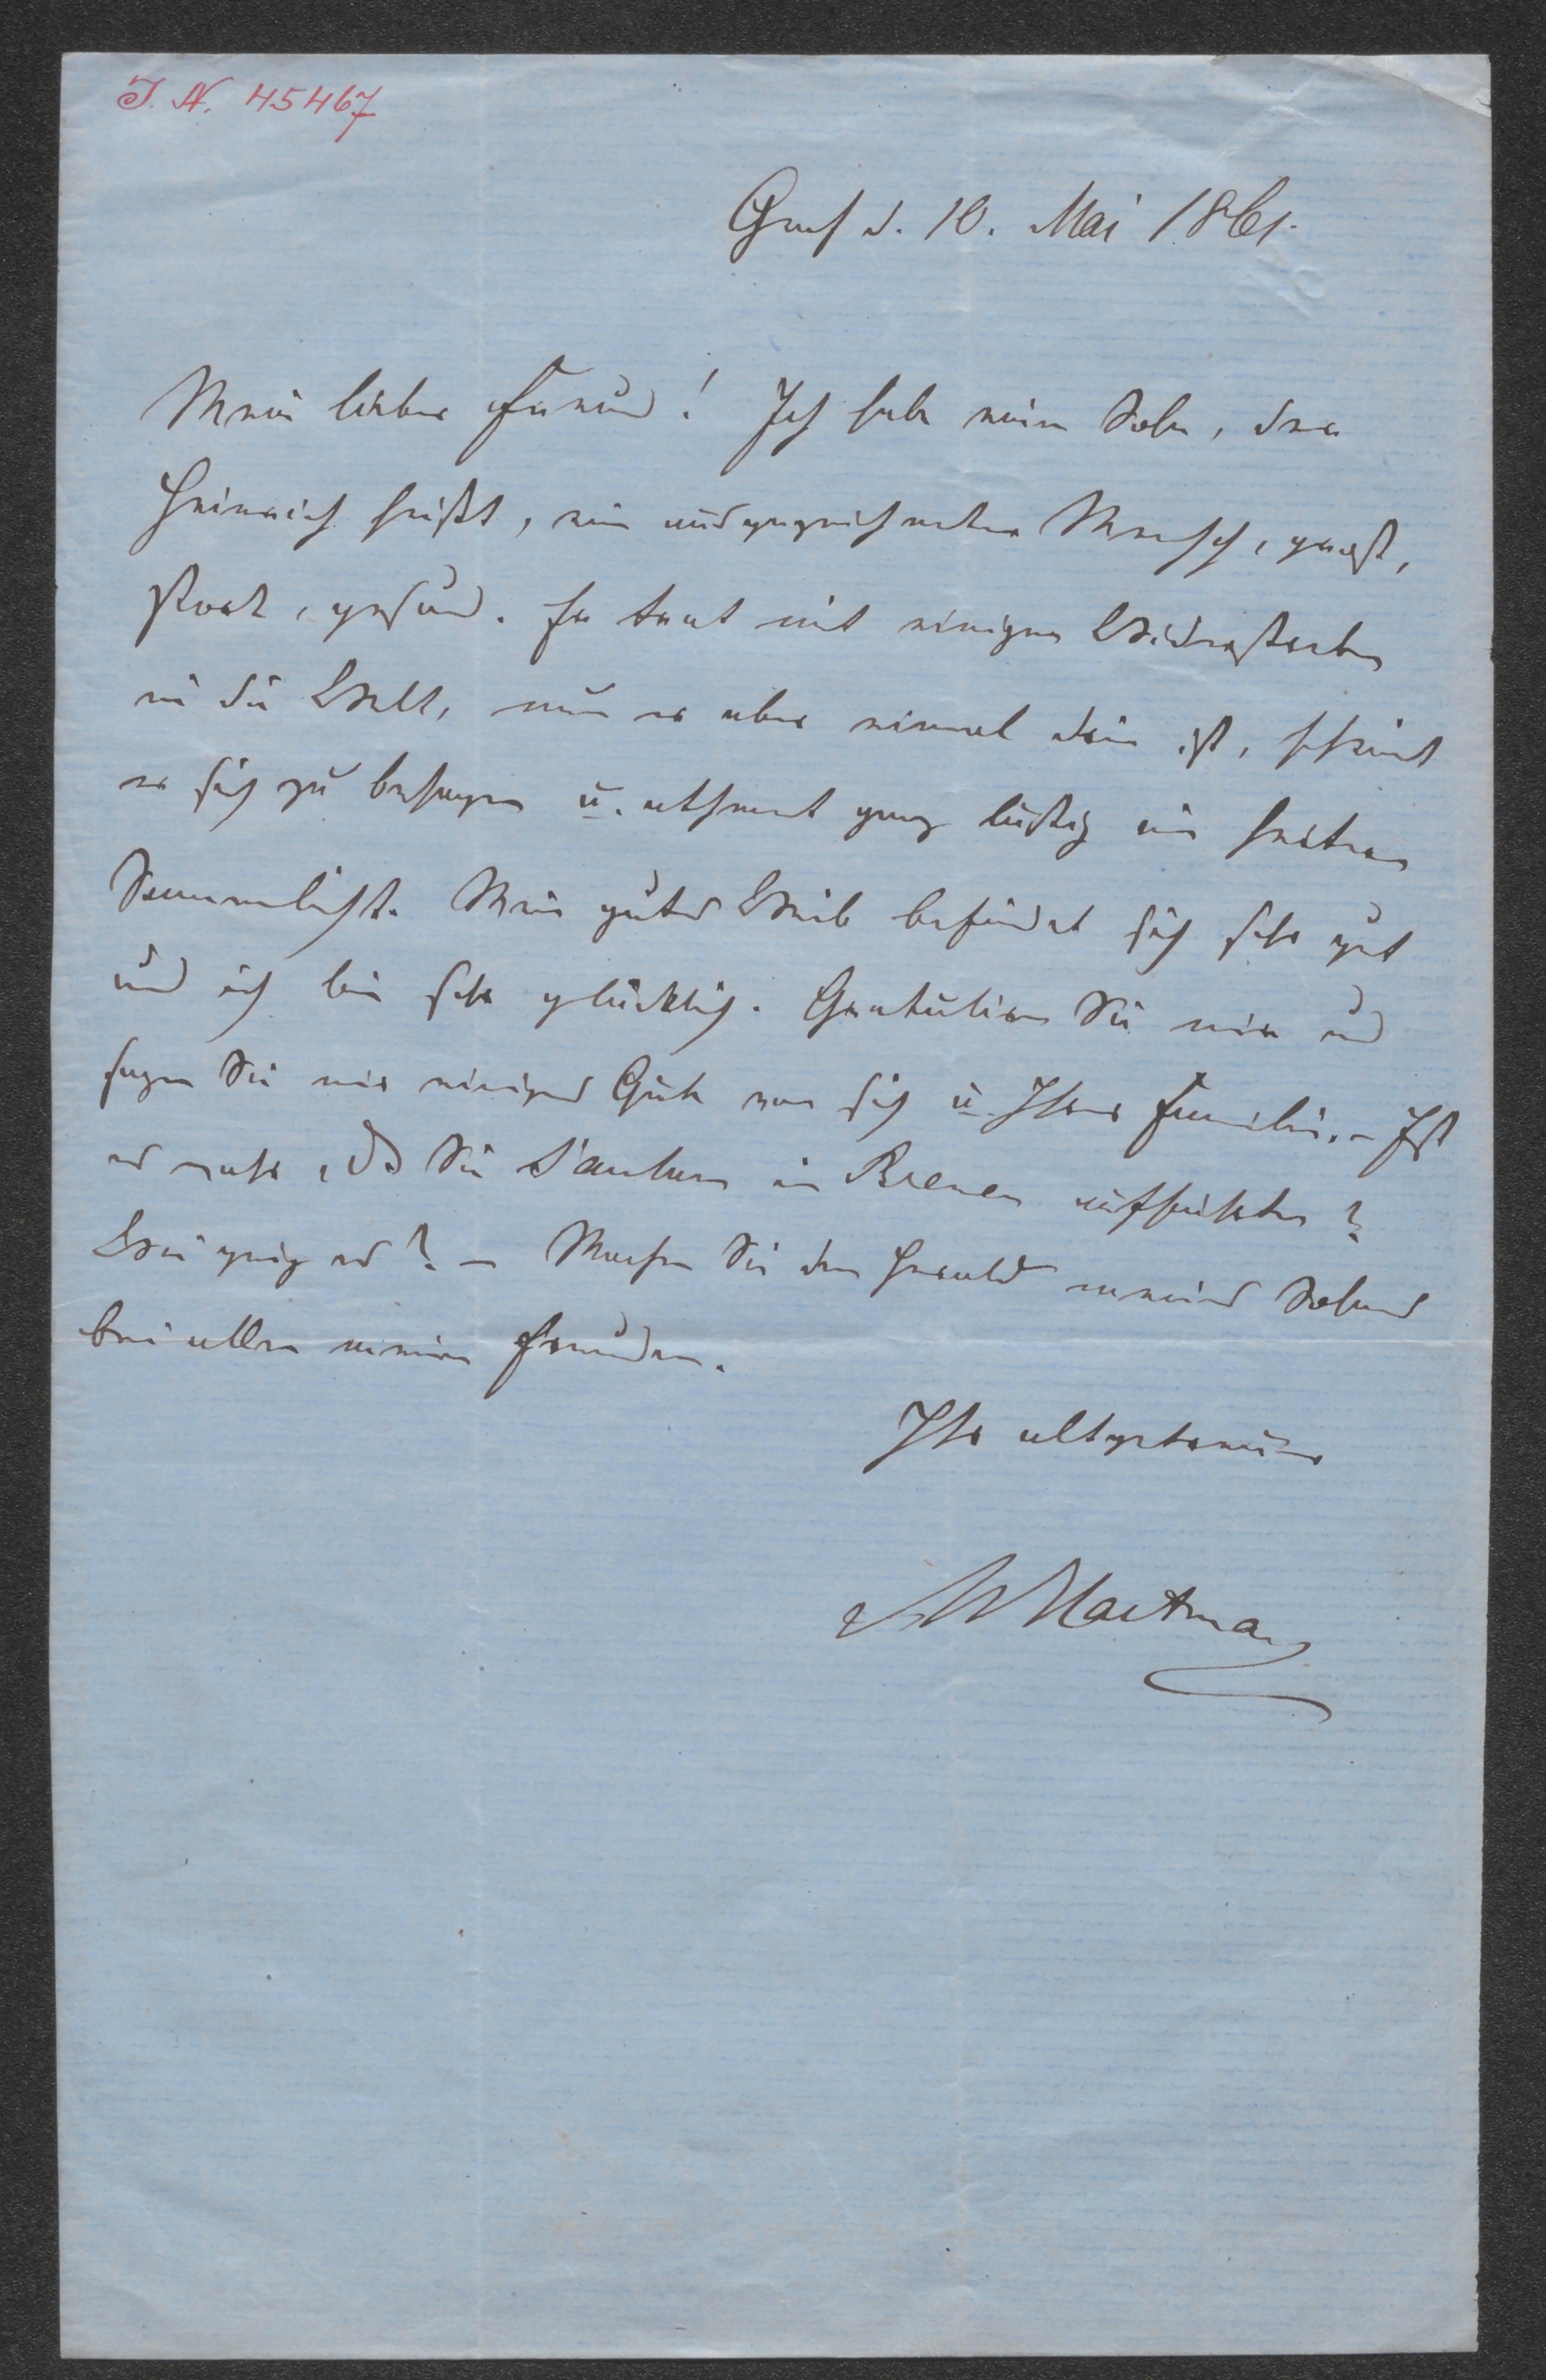 J. N. 45467
Genf d. 10. Mai 1861.
Mein lieber Freund! Ich habe einen Sohn, der
Heinrich heißt, ein ausgezeichneter Mensch, groß,
stark, gesund. Er trat mit einigem Widerstreben
in die Welt, nun er aber einmal drin ist, scheint
er sich zu behagen u. athmet ganz lustig im heitern
Sonnenlicht. Mein gutes Weib befindet sich sehr gut
und ich bin sehr glücklich. Gratuliren Sie mir und
sagen Sie mir einiges Gute von sich u. Ihrer Familie. – Ist
es wahr, daß Sie in Bremen aufführten?
Wie ging es? – Machen Sie den Herold meines Sohnes
bei allen meinen Freunden.
Ihr altgetreuer
M Hartmann